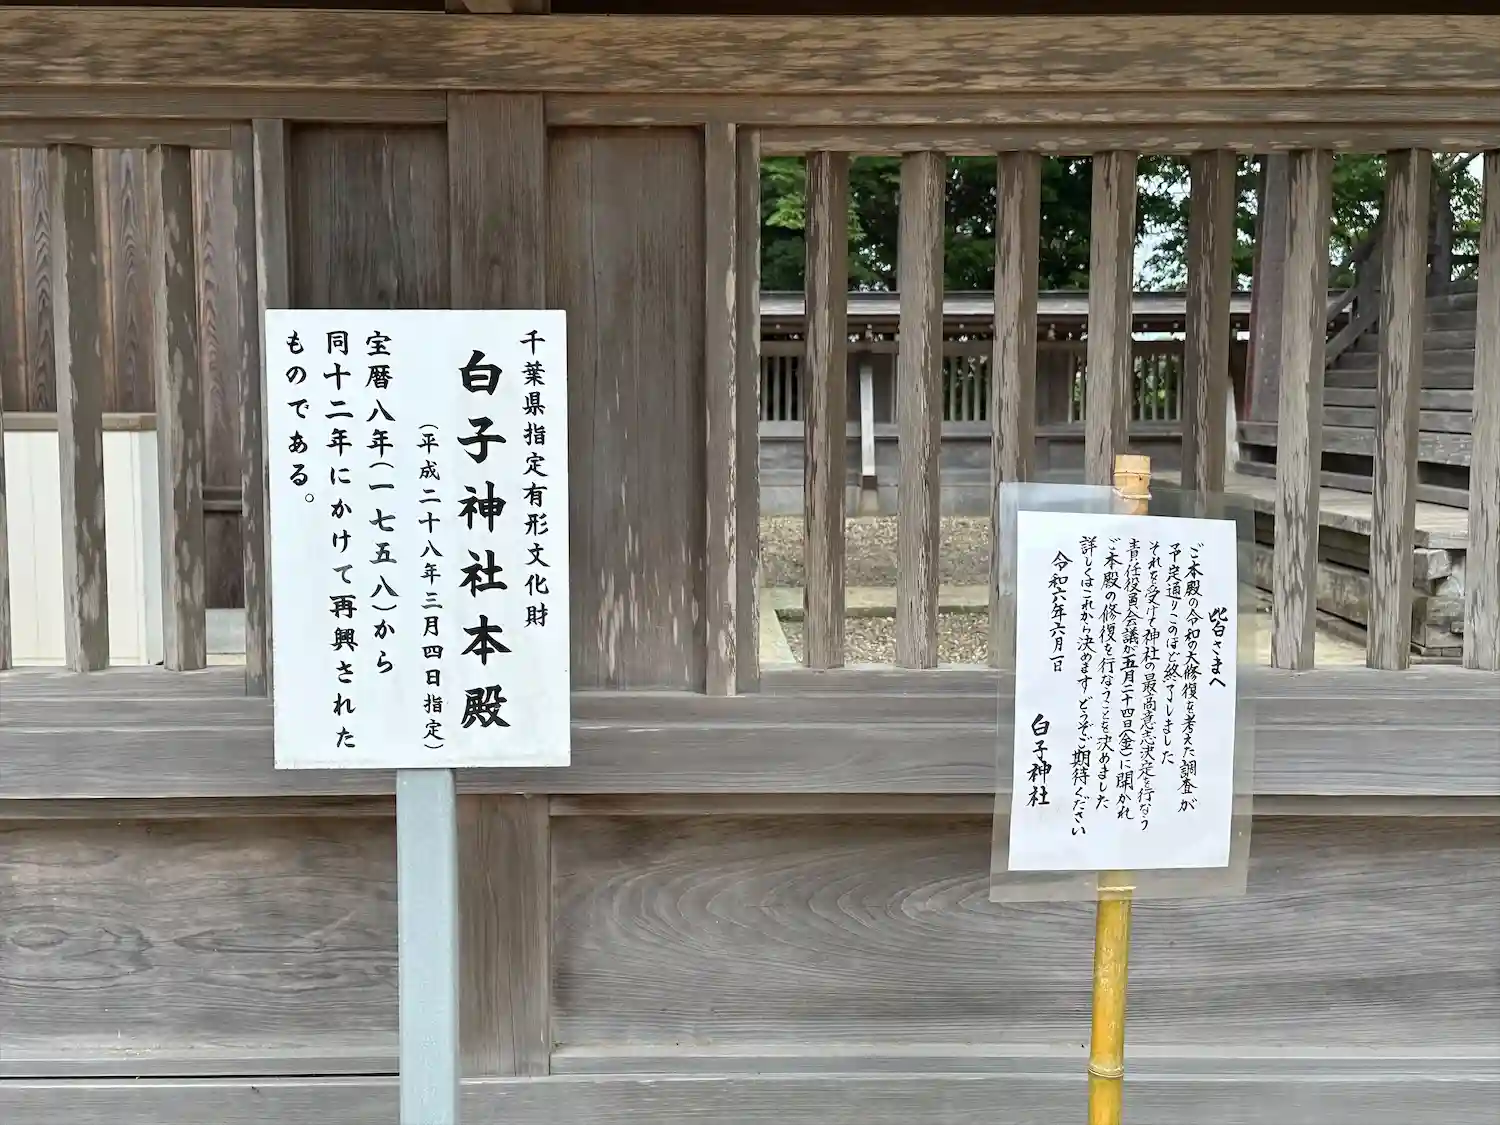 千葉県指定有形文化財
白子神社本殿
（平成二十八年三月四日指定）
宝暦八年（一七五八）から
同十二年にかけて再興された
ものである。
皆さまへ
ご本殿の令和の大修復を考えた調査が
予定通りこのほど終了しました
それを受けて神社の最高意志決定を行なう
責任役員会議が五月二十四日（金）に開かれ
ご本殿の修復を行なうことを決めました
詳しくはこれから決めます どうぞご期待ください
令和六年六月一日
白子神社